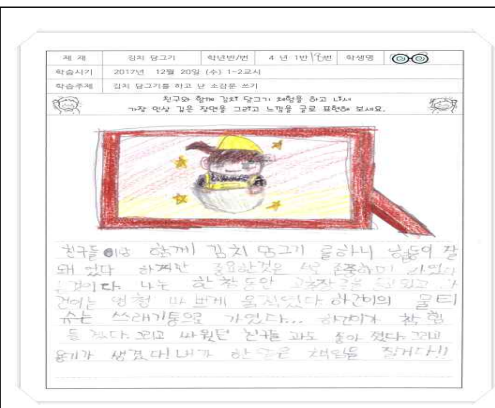 제 재 김치 담그기 학년반/번 4 년 1반 18번 학생명
학습시기 2017년 12월 20일 (수) 1-2교시
학습주제 김치 담그기를 하고 난 소감문 쓰기
친구와 함께 김치 담그기 체험을 하고 나서
가장 인상 깊은 장면을 그리고 느낌을 글로 표현해 보세요.
친구들이랑 함께 김치 담그기 를하니 협동이 잘
돼 었다 하지만
나는 한참동안
건이는 엄청 바쁘게 움직였다 하건이의 물티
슈는 쓰레기통으로 가였다... 하건이가 참 힘
들 었다. 그리고 싸웠던 친구들 과도 좋아 졌다. 그리고
용기가 생겼다! 내가 한 책임을 질거다!!